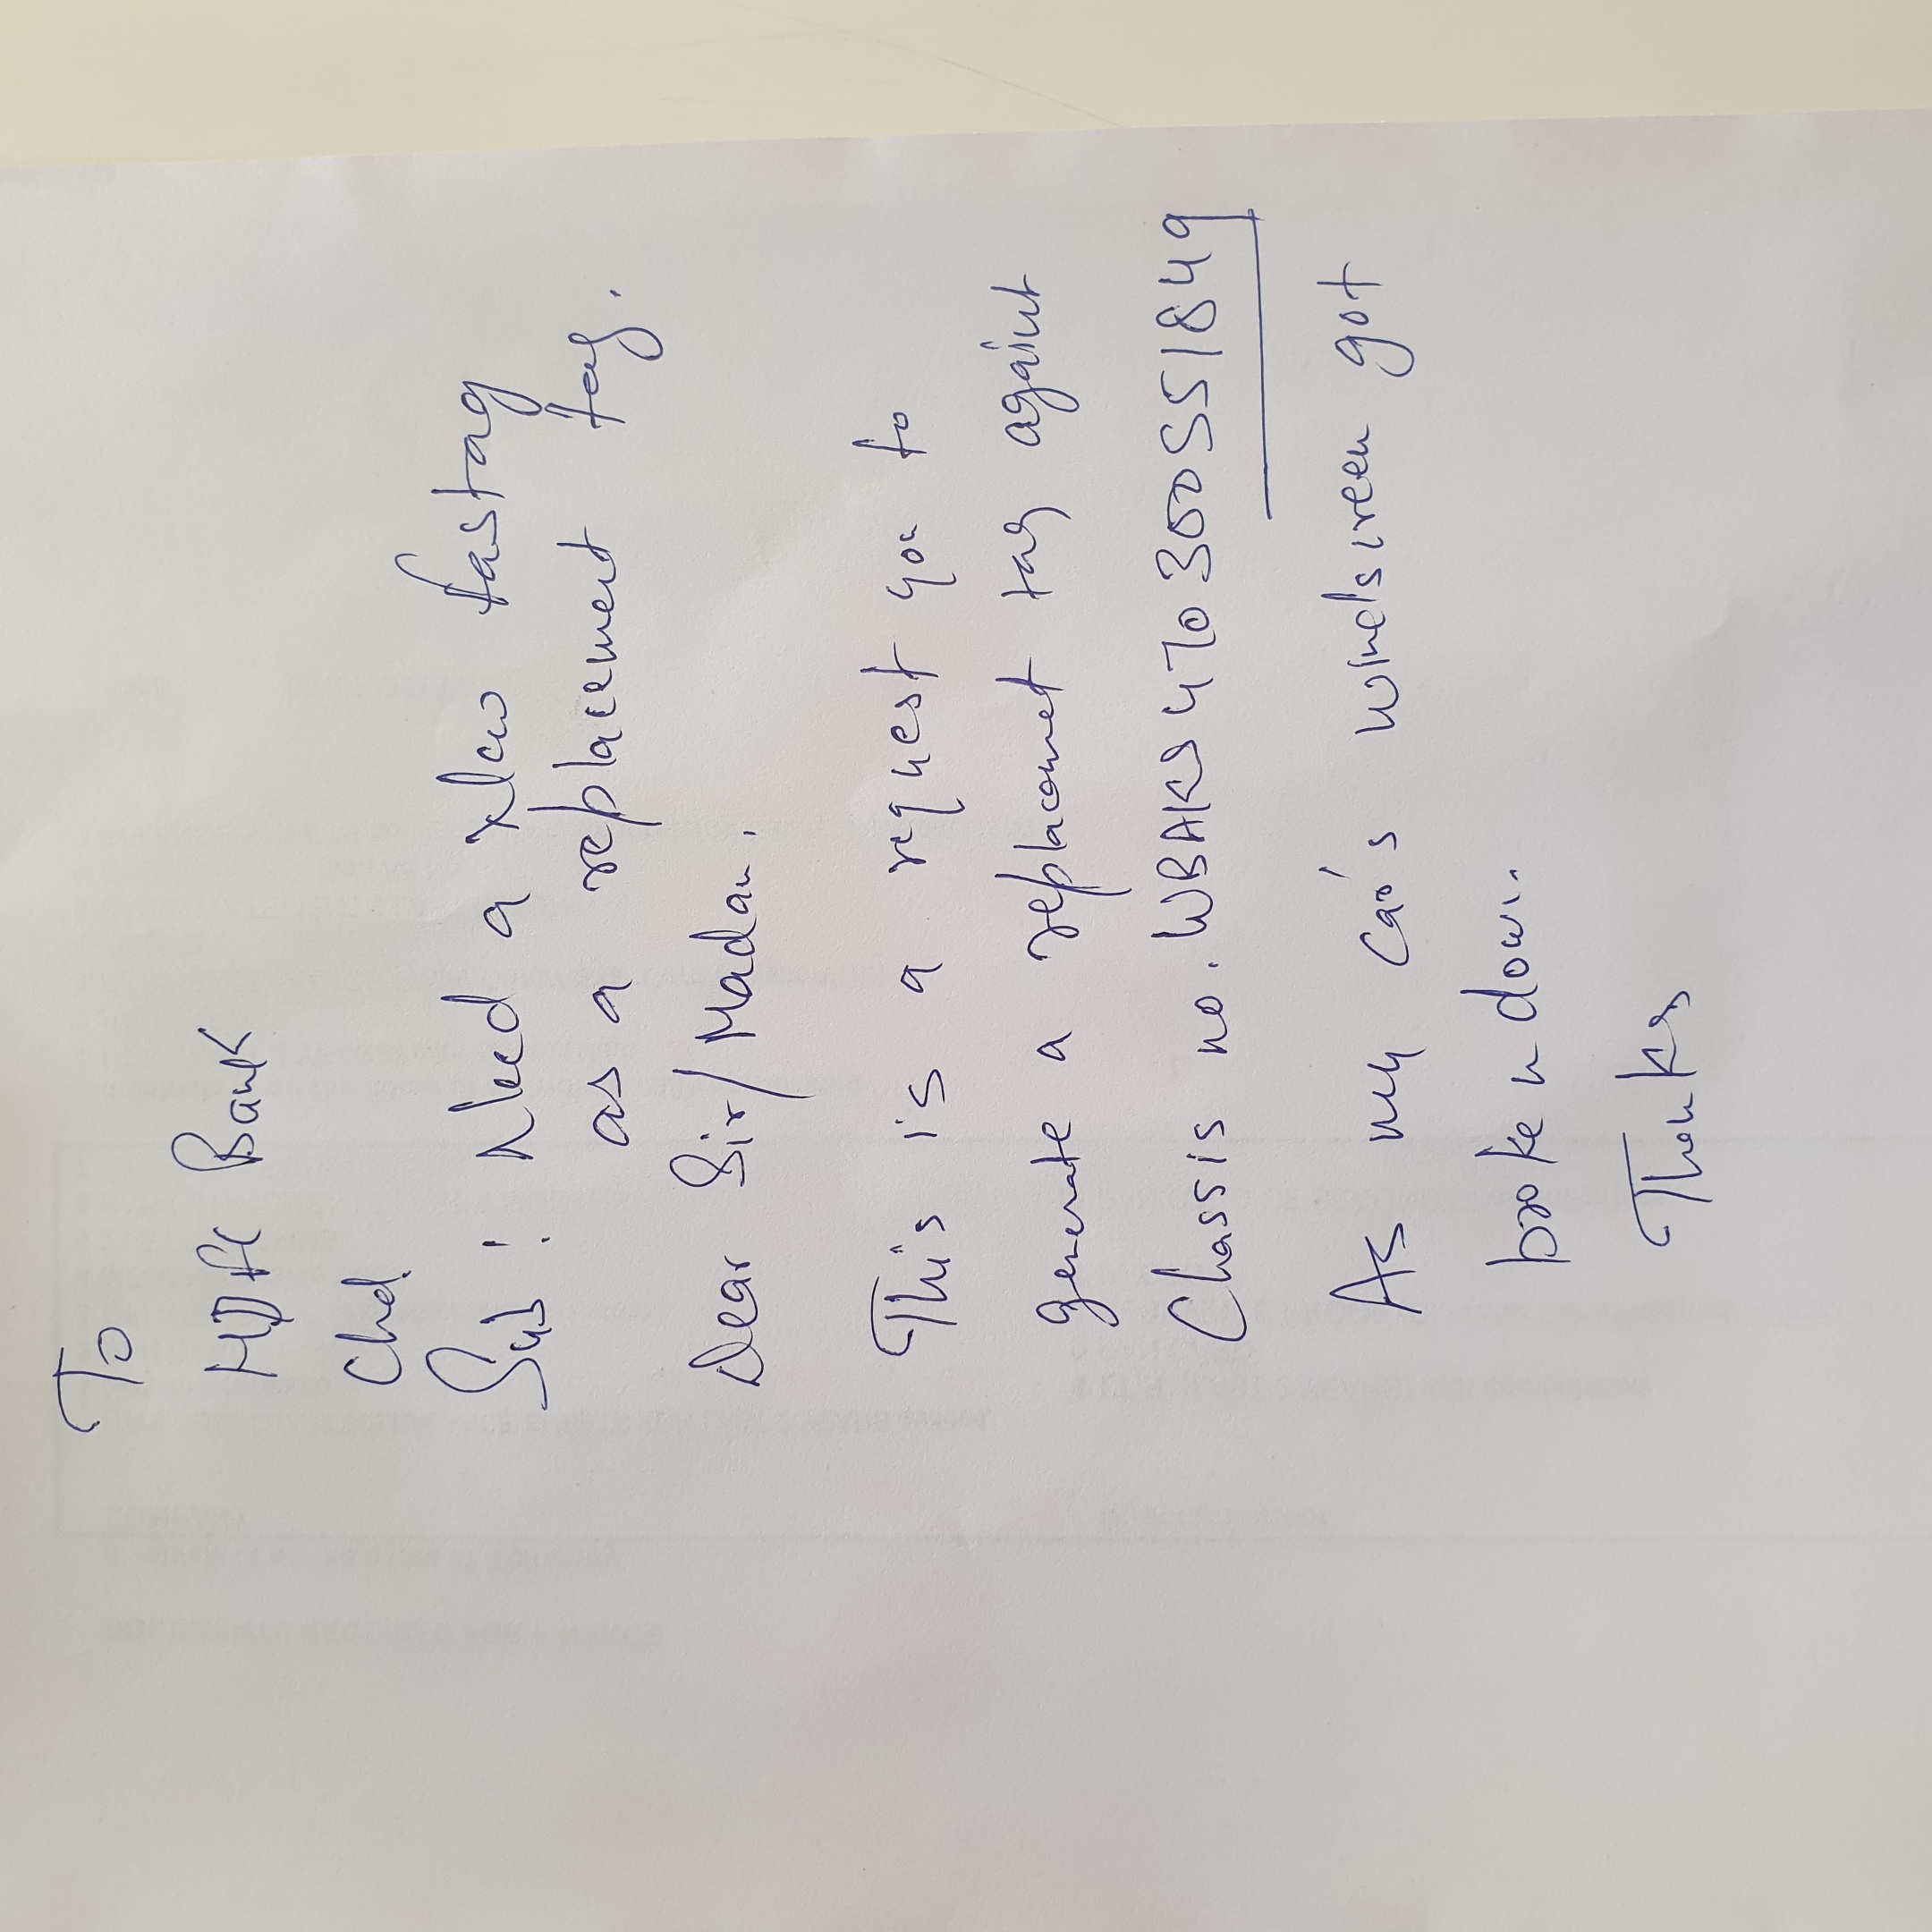 To
HDFC Bank
Chd.
Sub: Need a New fastag
as a replacement tag.
Dear Sir/Madam.
This is a request you to
generate a replacemet tag against
Chassis no. WBAKS4703005S1849
As my Car's windsreen got
broken down.
Thanks